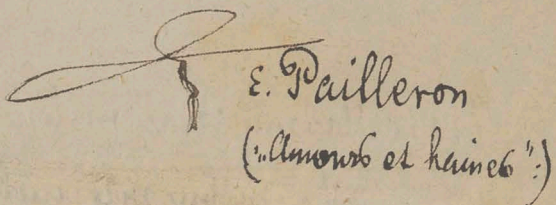 E. Pailleron
(:„Amours et haines":)